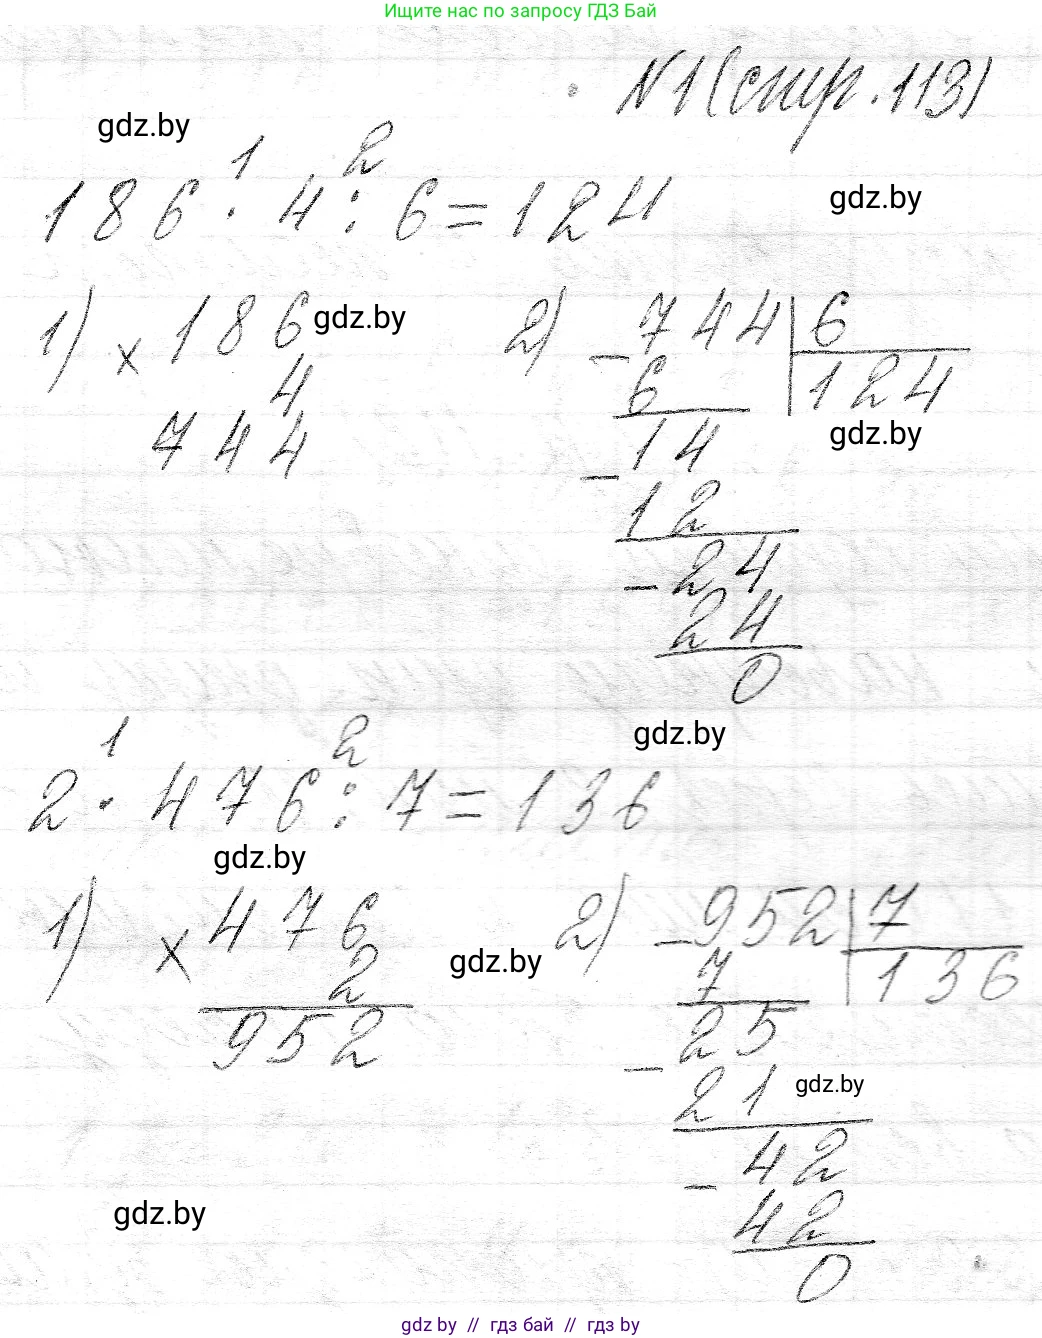 Ищите нас по запросу ГДЗ Бай
№1 (стр. 113)
gdz.by
1 2
186 · 4 : 6 = 124
gdz.by
1) × 186
4
744
gdz.by
2) - 744 | 6
6 124
gdz.by
- 14
12
- 24
24
0
gdz.by
1 2
2 · 476 : 7 = 136
gdz.by
1) × 476
2
952
gdz.by
2) - 952 | 7
7 136
- 25
21
gdz.by
- 42
42
0
gdz.by
gdz.by // гдз бай // гдз by